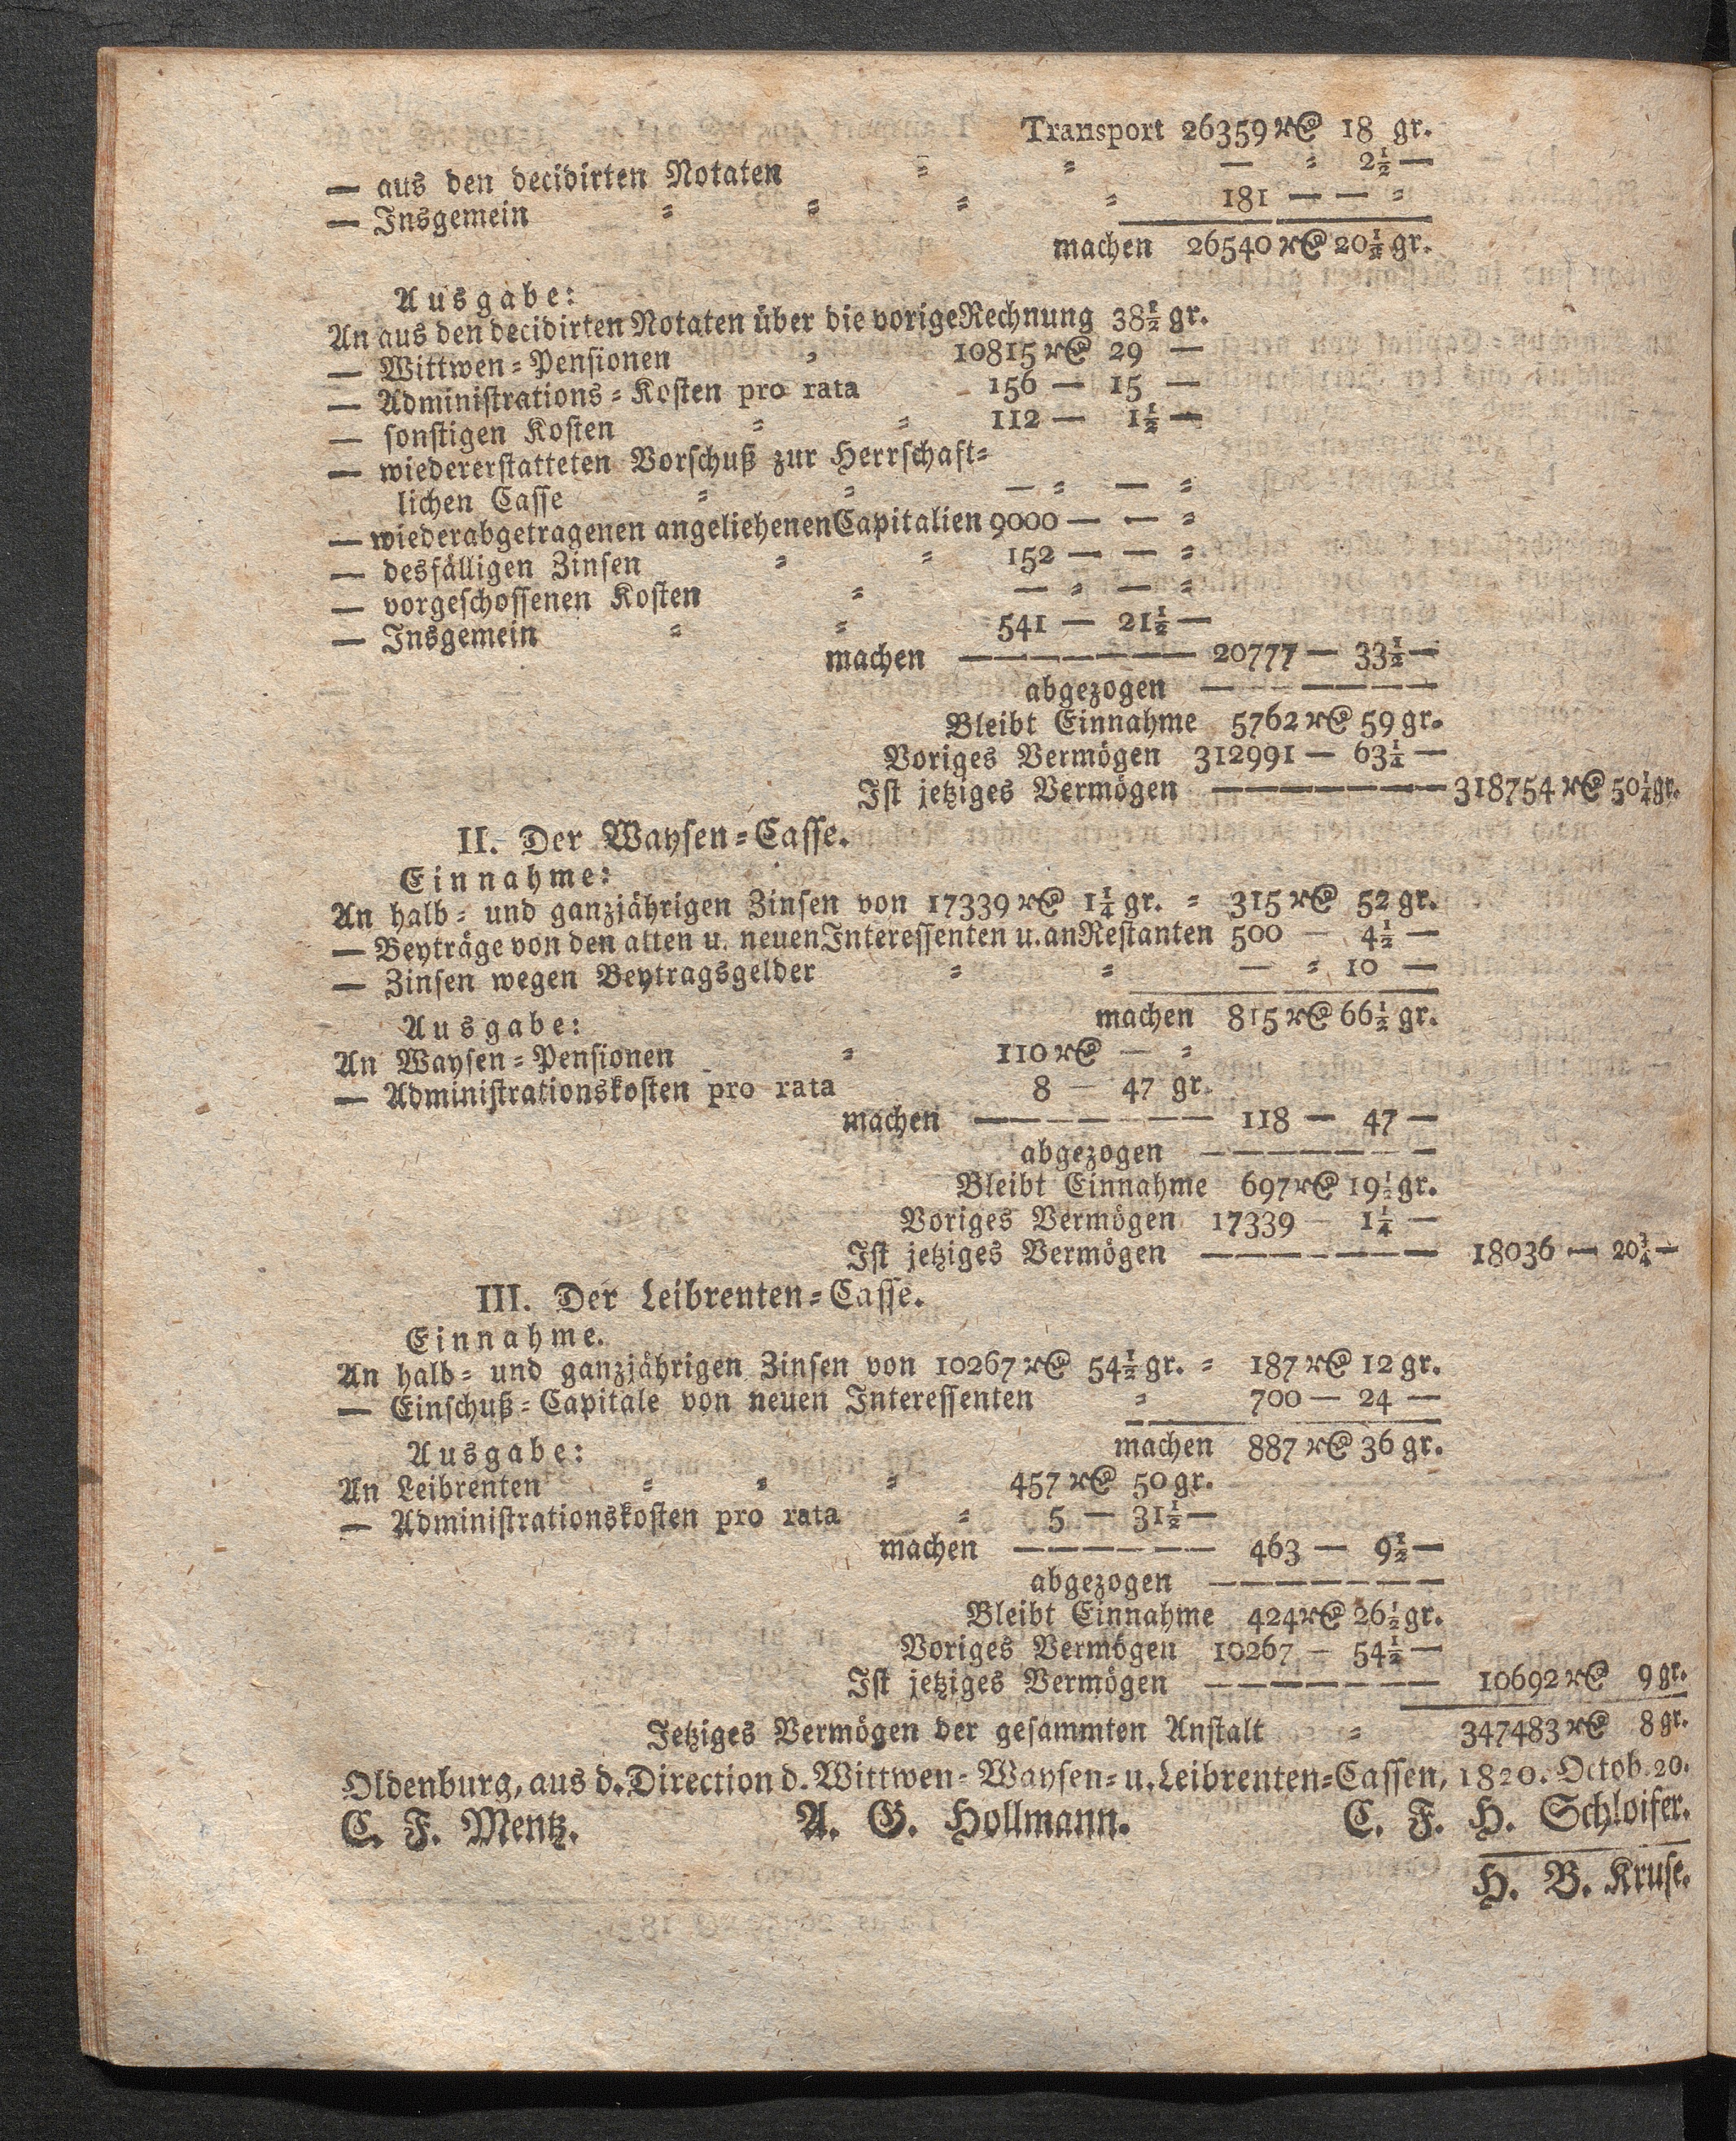 Transport 26359 r@ 18 gr.
— aus den decidirten Notaten = = — = 2½ —
— Insgemein = = = = 181 — — =
machen 26540 r@ 20½ gr.
Ausgabe:
An aus den decidirten Notaten über die vorige Rechnung 38½ gr.
— Wittwen=Pensionen = 10815 r@ 29 —
— Administrations=Kosten pro rata 156 — 15 —
— sonstigen Kosten = = 112 — 1½ —
— wiedererstatteten Vorschuß zur Herrschaft=
lichen Casse = = — = — =
— wiederabgetragenen angeliehenen Capitalien 9000 — — =
— desfälligen Zinsen = = 152 — — =
— vorgeschossenen Kosten = — = — =
— Insgemein = = 541 — 21½ —
machen — — — — — — — 20777 — 33½ —
abgezogen — — — — — — —
Bleibt Einnahme 5762 r@ 59 gr.
Voriges Vermögen 312991 — 63¼ —
Ist jetziges Vermögen — — — — — — — 318754 r@ 50¼ gr.
II. Der Waysen=Casse.
Einnahme:
An halb= und ganzjährigen Zinsen von 17339 r@ 1¼ gr. = 315 r@ 52 gr.
— Beyträge von den alten u. neuen Interessenten u. an Restanten 500 — 4½ —
— Zinsen wegen Beytragsgelder = = — = 10 —
machen 815 r@ 66½ gr.
Ausgabe:
An Waysen=Pensionen = 110 r@ — =
— Administrationskosten pro rata 8 — 47 gr.
machen — — — — — — — 118 — 47 —
abgezogen — — — — — — —
Bleibt Einnahme 697 r@ 19½ gr.
Voriges Vermögen 17339 — 1¼ —
Ist jetziges Vermögen — — — — — — — 18036 — 20¾ —
III. Der Leibrenten=Casse.
Einnahme.
An halb= und ganzjährigen Zinsen von 10267 r@ 54½ gr. = 187 r@ 12 gr.
— Einschuß=Capitale von neuen Interessenten = 700 — 24 —
machen 887 r@ 36 gr.
Ausgabe:
An Leibrenten = = = 457 r@ 50 gr.
— Administrationskosten pro rata = 5 — 31½ —
machen — — — — — — 463 — 9½ —
abgezogen — — — — — — —
Bleibt Einnahme 424 r@ 26½ gr.
Voriges Vermögen 10267 — 54½ —
Ist jetziges Vermögen — — — — — — — 10692 r@ 9 gr.
Jetziges Vermögen der gesammten Anstalt = 347483 r@ 8 gr.
Oldenburg, aus d. Direction d. Wittwen= Waysen= u. Leibrenten=Cassen, 1820. Octob. 20.
C. F. Mentz. A. G. Hollmann. C. F. H. Schloifer.
H. B. Kruse.